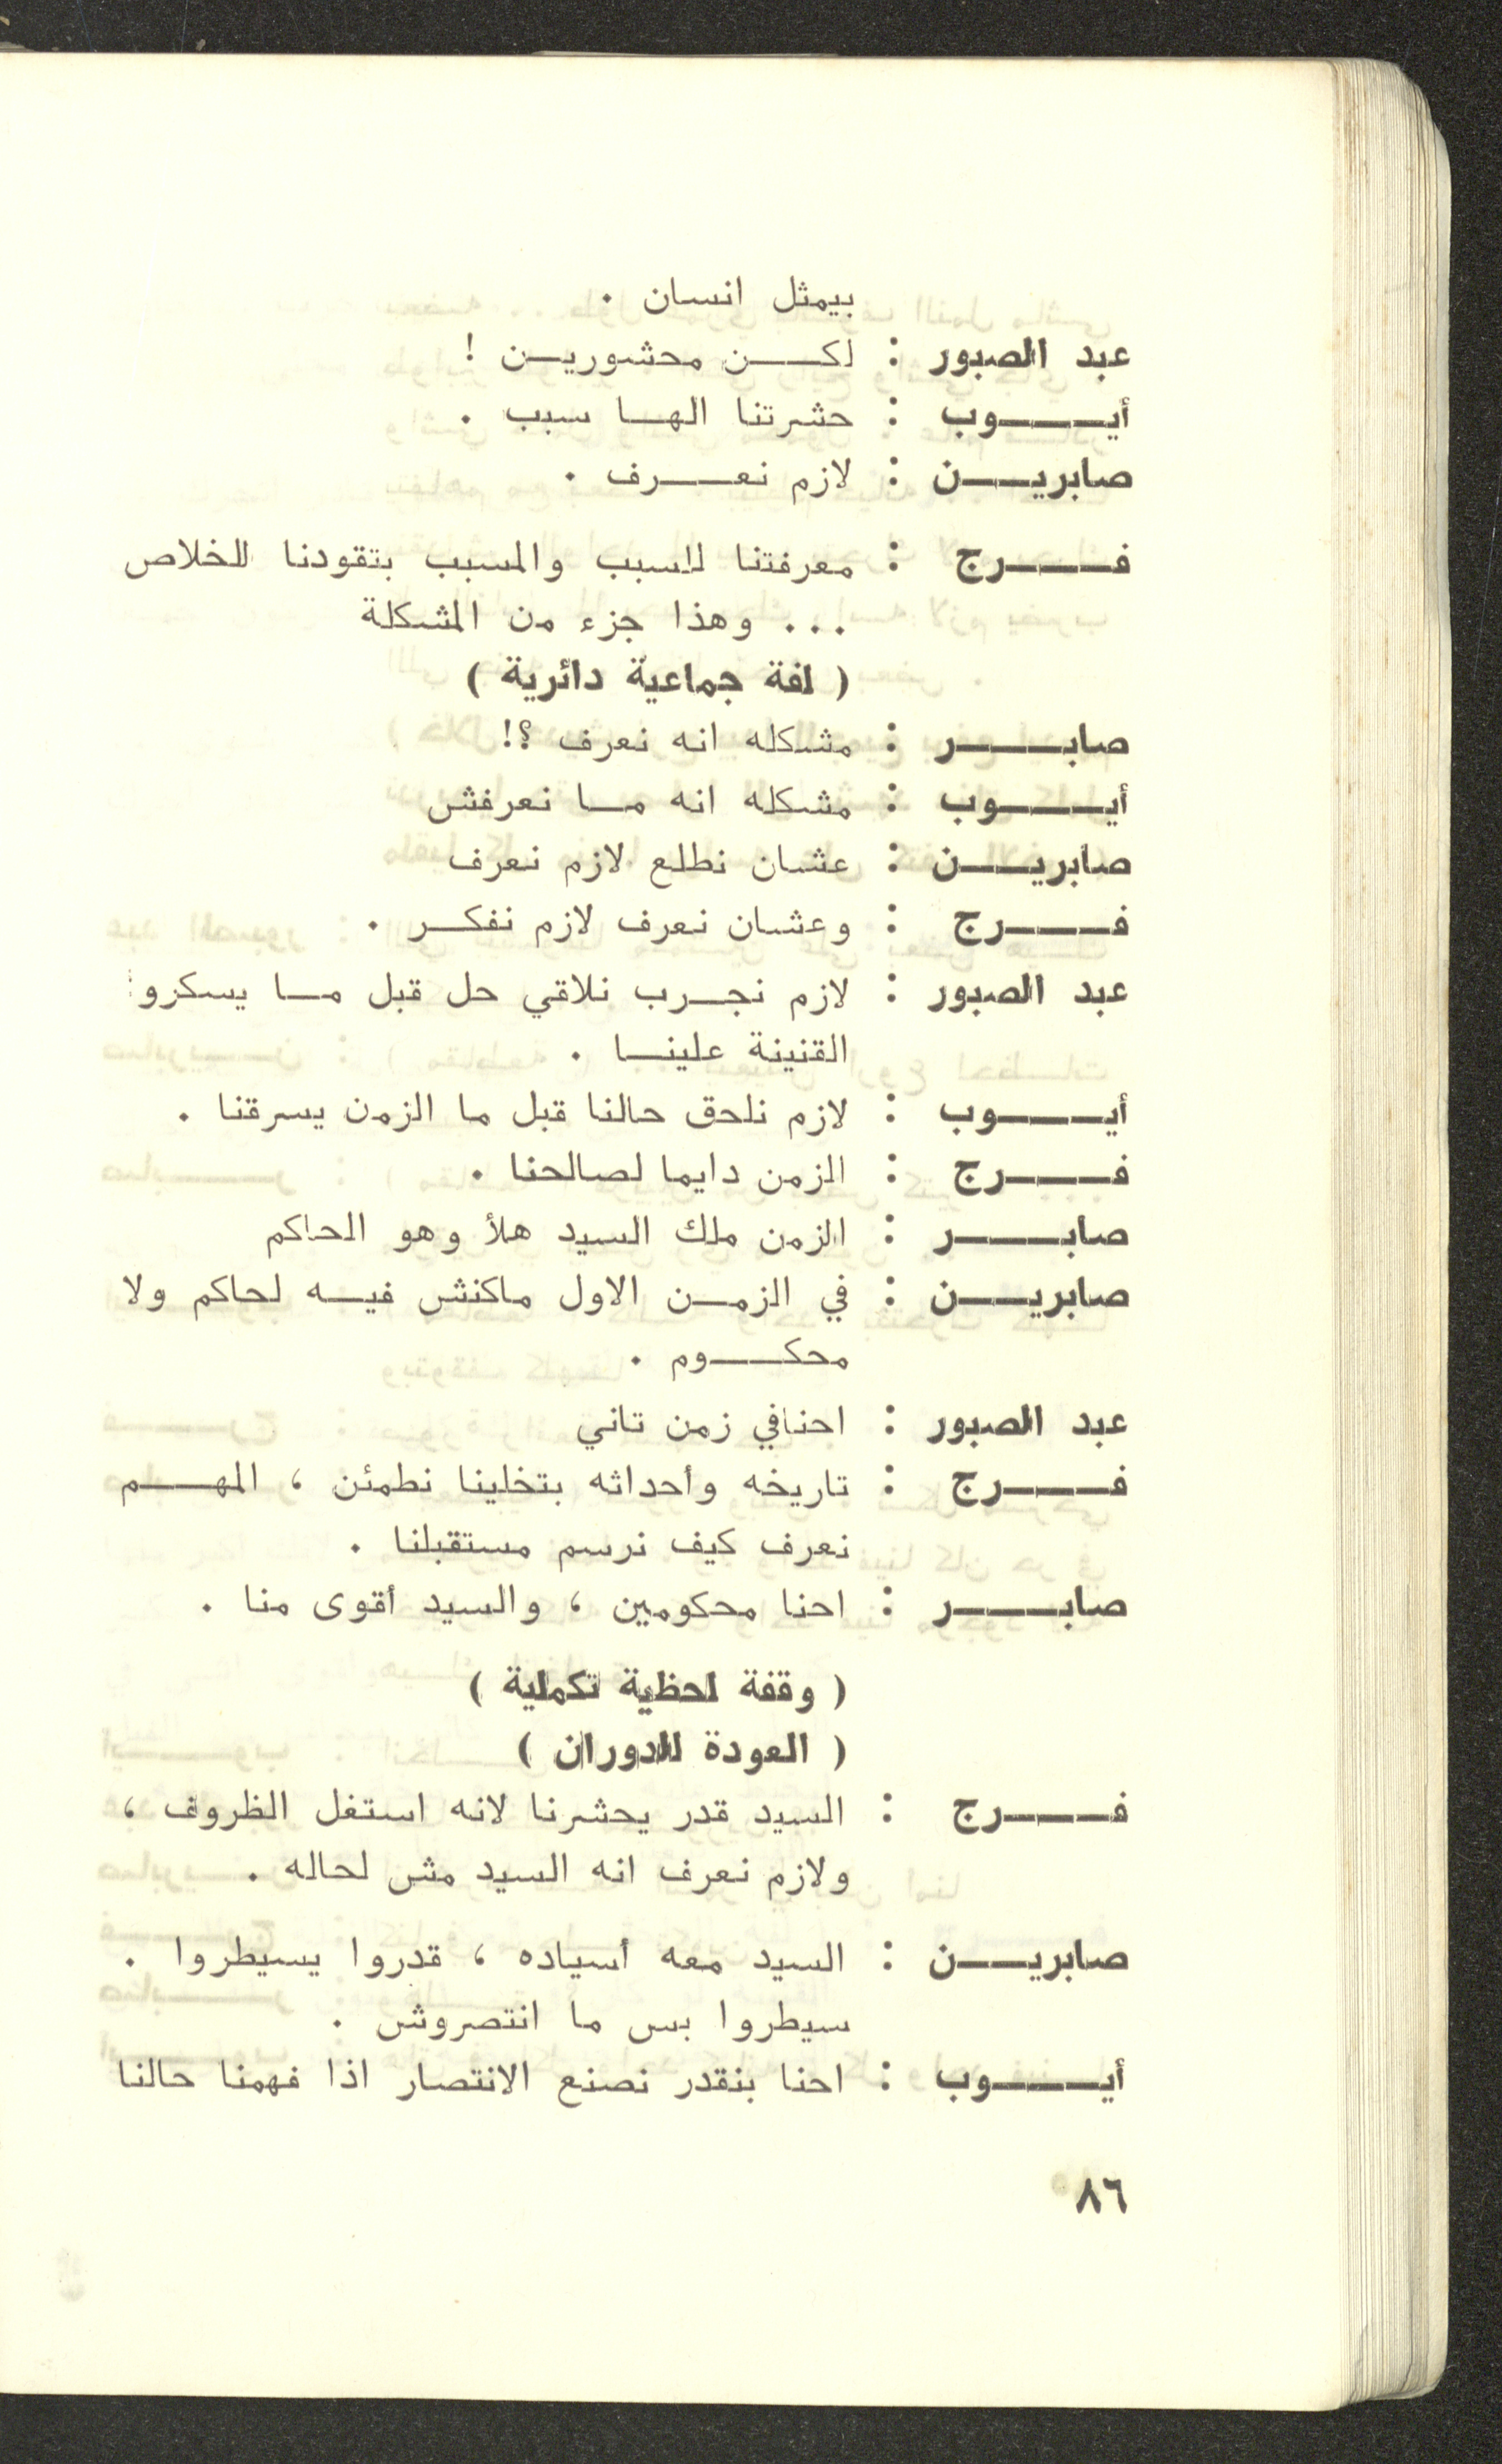 بيمثل انسان .
عبد الصبور : لكن محشورين !
أيوب : حشرتنا الها سبب .
صابرين : لازم نعرف .
فرج : معرفتنا للسبب والمسبب بتقودنا للخلاص
... وهذا جزء من المشكلة
( لفة جماعية دائرية )
صابر : مشكله انه نعرف ؟!
أيوب : مشكله انه ما نعرفش
صابرين : عشان نطلع لازم نعرف
فرج : وعشان نعرف لازم نفكر .
عبد الصبور : لازم نجرب نلاقي حل قبل ما يسكروا
القنينة علينا .
أيوب : لازم نلحق حالنا قبل ما الزمن يسرقنا .
فرج : الزمن دايما لصالحنا .
صابر : الزمن ملك السيد هلأ وهو الحاكم
صابرين : في الزمن الاول ماكنش فيه لحاكم ولا
محكوم .
عبد الصبور : احنافي زمن تاني
فرج : تاريخه وأحداثه بتخلينا نطمئن ، المهم
نعرف كيف نرسم مستقبلنا .
صابر : احنا محكومين ، والسيد أقوى منا .
( وقفة لحظية تكملية )
( العودة للدوران )
فرج : السيد قدر يحشرنا لانه استغل الظروف ،
ولازم نعرف انه السيد مش لحاله .
صابرين : السيد معه أسياده ، قدروا يسيطروا .
سيطروا بس ما انتصروش .
أيوب : احنا بنقدر نصنع الانتصار اذا فهمنا حالنا
٨٦